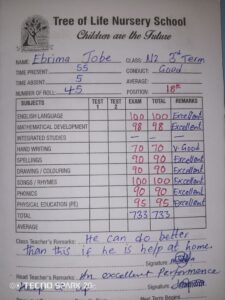 Tree of Life Nursery School
Children are the Future
NAME: Ebrima Jobe CLASS: N2 3rd Term
TIME PRESENT: 55 CONDUCT: Good
TIME ABSENT: 5 AVERAGE:
NUMBER OF ROLL: 45 POSITION: 18th
SUBJECTS TEST 1 TEST 2 EXAM TOTAL REMARKS
ENGLISH LANGUAGE 100 100 Excellent
MATHEMATICAL DEVELOPMENT 98 98 Excellent
INTEGRATED STUDIES - - -
HAND WRITING 70 70 V-Good
SPELLINGS 90 90 Excellent
DRAWING / COLOURING 90 90 Excellent
SONGS / RHYMES 100 100 Excellent
PHONICS 90 90 Excellent
PHYSICAL EDUCATION (PE) 95 95 Excellent
TOTAL 733 733
AVERAGE
Class Teacher's Remarks: He can do better
than this if he is help at home.
Signature:
Head Teacher's Remarks: An excellent Performance
Signature
TECNO SPARK
Next Term Begins